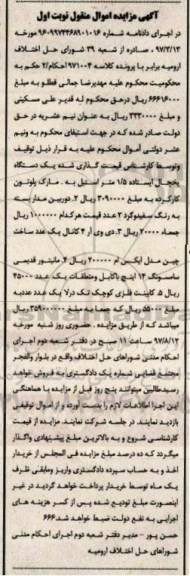 آگهی مزایده اموال منقول نوبت اول
در اجرای دادنامه شماره ۹۶۰۹۹۷۴۴۶۸۹۰۱۰۱۶ مورخه
۹۷/۲/۱۳ صادره از شعبه ۳۹ شورای حل اختلاف
ارومیه برابر با پرونده کلاسه ۹۷۱۰۰۳ احکام/۲ حکم به
محکومیت محکوم علیه مهدیرضا جمالی قطلو به مبلغ
۶۶۶۱۶۰۰۰ ریال درحق محکوم له قدیر علی مسکینی
و به مبلغ ۳۳۳۰۰۰۰ ریال به عنوان نیم عشریه در حق
دولت صادر شده که در جهت استیفای محکوم به ونیم
عشر دولتی اموال محکوم علیه به قرار ذیل توقیف
وتوسط کارشناس قیمت گذاری شده یک دستگاه
یخچال ایستاده ۱/۵ متر استیل به . مارک پلوتون
کارکرده به مبلغ ۳۰۹۰۰۰۰۰ ریال ۲. دوربین مدار بسته
به رنگ سفیدوکرد ۲ عدد قیمت هرکدام ۱۰۰۰۰۰۰ ریال
جمعاً ۲۰۰۰۰۰۰ ریال ۳. دی وی آر ۴ کانال یک عدد ساخت
چین مدل ایکس ام ۲۰۰۰۰۰۰ ریال ۴. مانیتور قدیمی
سامسونگ ۱۴ اینچ باکابل ومتعلقات یک عدد ۴۵۰۰۰۰
ریال ۵. کابینت فلزی کوچک تک درلا یک عدد عدبه
مبلغ ۵۵۰۰۰۰ ریال که جمعاً به مبلغ ۳۵۹۰۰۰۰۰ ریال
میباشد که از طریق مزایده . حضوری روز شنبه مورخه
۹۷/۸/۱۲ ساعت ۱۱ صبح در دفتر شعبه دوم اجرای
احکام مدنی شوراهای حل اختلاف واقع در بلوار والفجر
مجتمع قضایی شماره یک دادگستری به فروش خواهد
رسید طالبین میتوانند پنج روز قبل از مزایده با هماهنگی
این اجرا اطلاعات لازم را بدست آورده و از اموال توقیفی
بازدید نمایند. در جلسه شرکت نمایند. مزایده از قیمت
کارشناسی شروع و به بالاترین مبلغ پیشنهادی واگذار
میگردد که ده درصد مبلغ مزایده فی المجلس از خریدار
اخذ و به حساب سپرده دادگستری واریز ومابقی ظرف
یک ماه توسط خریدار پرداخت خواهد گردید در غیر
اینصورت مبلغ تودیع شده پس از کسر هزینه های
اجرایی به نفع دولت ضبط خواهد شد ۶۶۶
حسن پور - مدیر دفتر شعبه دوم اجرای احکام مدنی
شوراهای حل اختلاف ارومیه